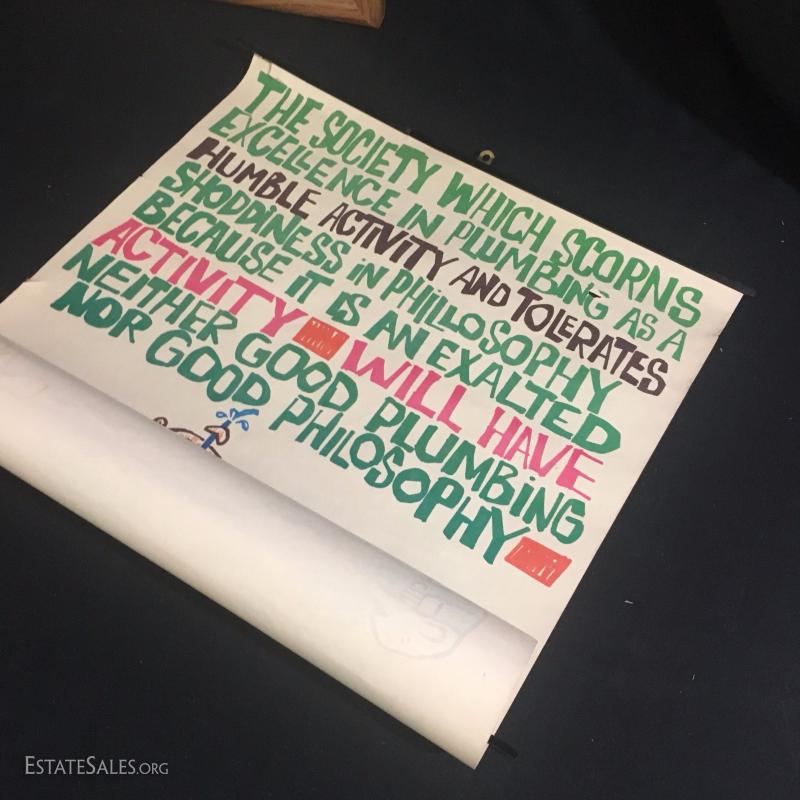 THE SOCIETY WHICH SCORNS
EXCELLENCE IN PLUMBING AS A
HUMBLE ACTIVITY AND TOLERATES
SHODDINESS IN PHILLOSOPHY
BECAUSE IT IS AN EXALTED
ACTIVITY WILL HAVE
NEITHER GOOD PLUMBING
NOR GOOD PHILOSOPHY
ESTATESALES.ORG